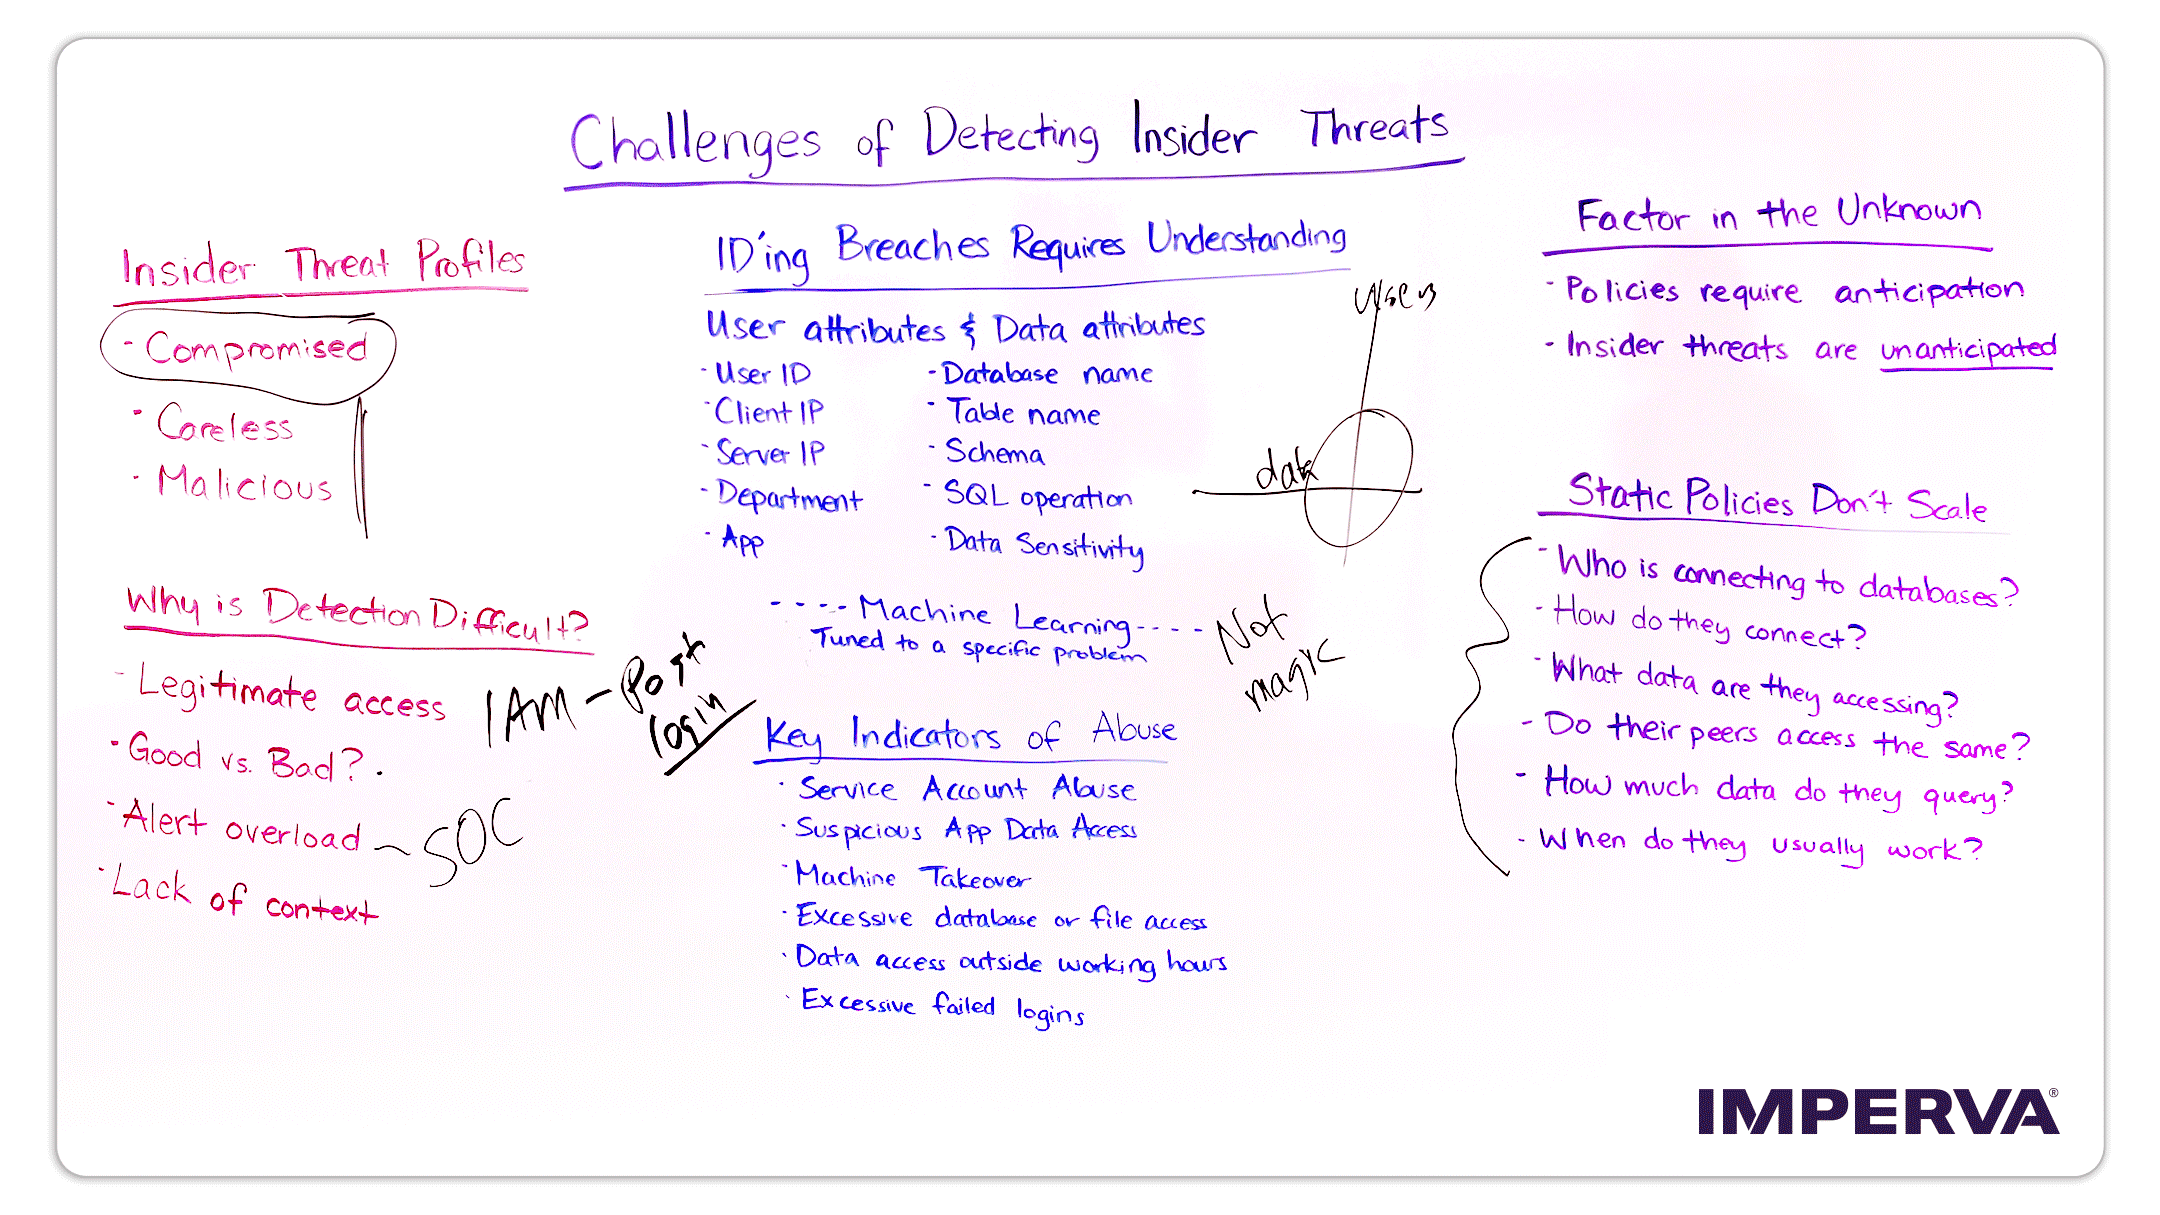 Challenges of Detecting Insider Threats
Insider Threat Profiles
- Compromised
- Careless
- Malicious
Why is Detection Difficult?
- Legitimate access
IAM - Post login
- Good vs. Bad?
- Alert overload ~ SOC
- Lack of context
ID'ing Breaches Requires Understanding
User attributes & Data attributes
- User ID
- Client IP
- Server IP
- Department
- App
- Database name
- Table name
- Schema
- SQL operation
- Data Sensitivity
users
data
---- Machine Learning ----
Tuned to a specific problem
Not
magic
Key Indicators of Abuse
· Service Account Abuse
· Suspicious App Data Access
· Machine Takeover
· Excessive database or file access
· Data access outside working hours
· Excessive failed logins
Factor in the Unknown
- Policies require anticipation
- Insider threats are unanticipated
Static Policies Don't Scale
- Who is connecting to databases?
- How do they connect?
- What data are they accessing?
- Do their peers access the same?
- How much data do they query?
- When do they usually work?
IMPERVA®